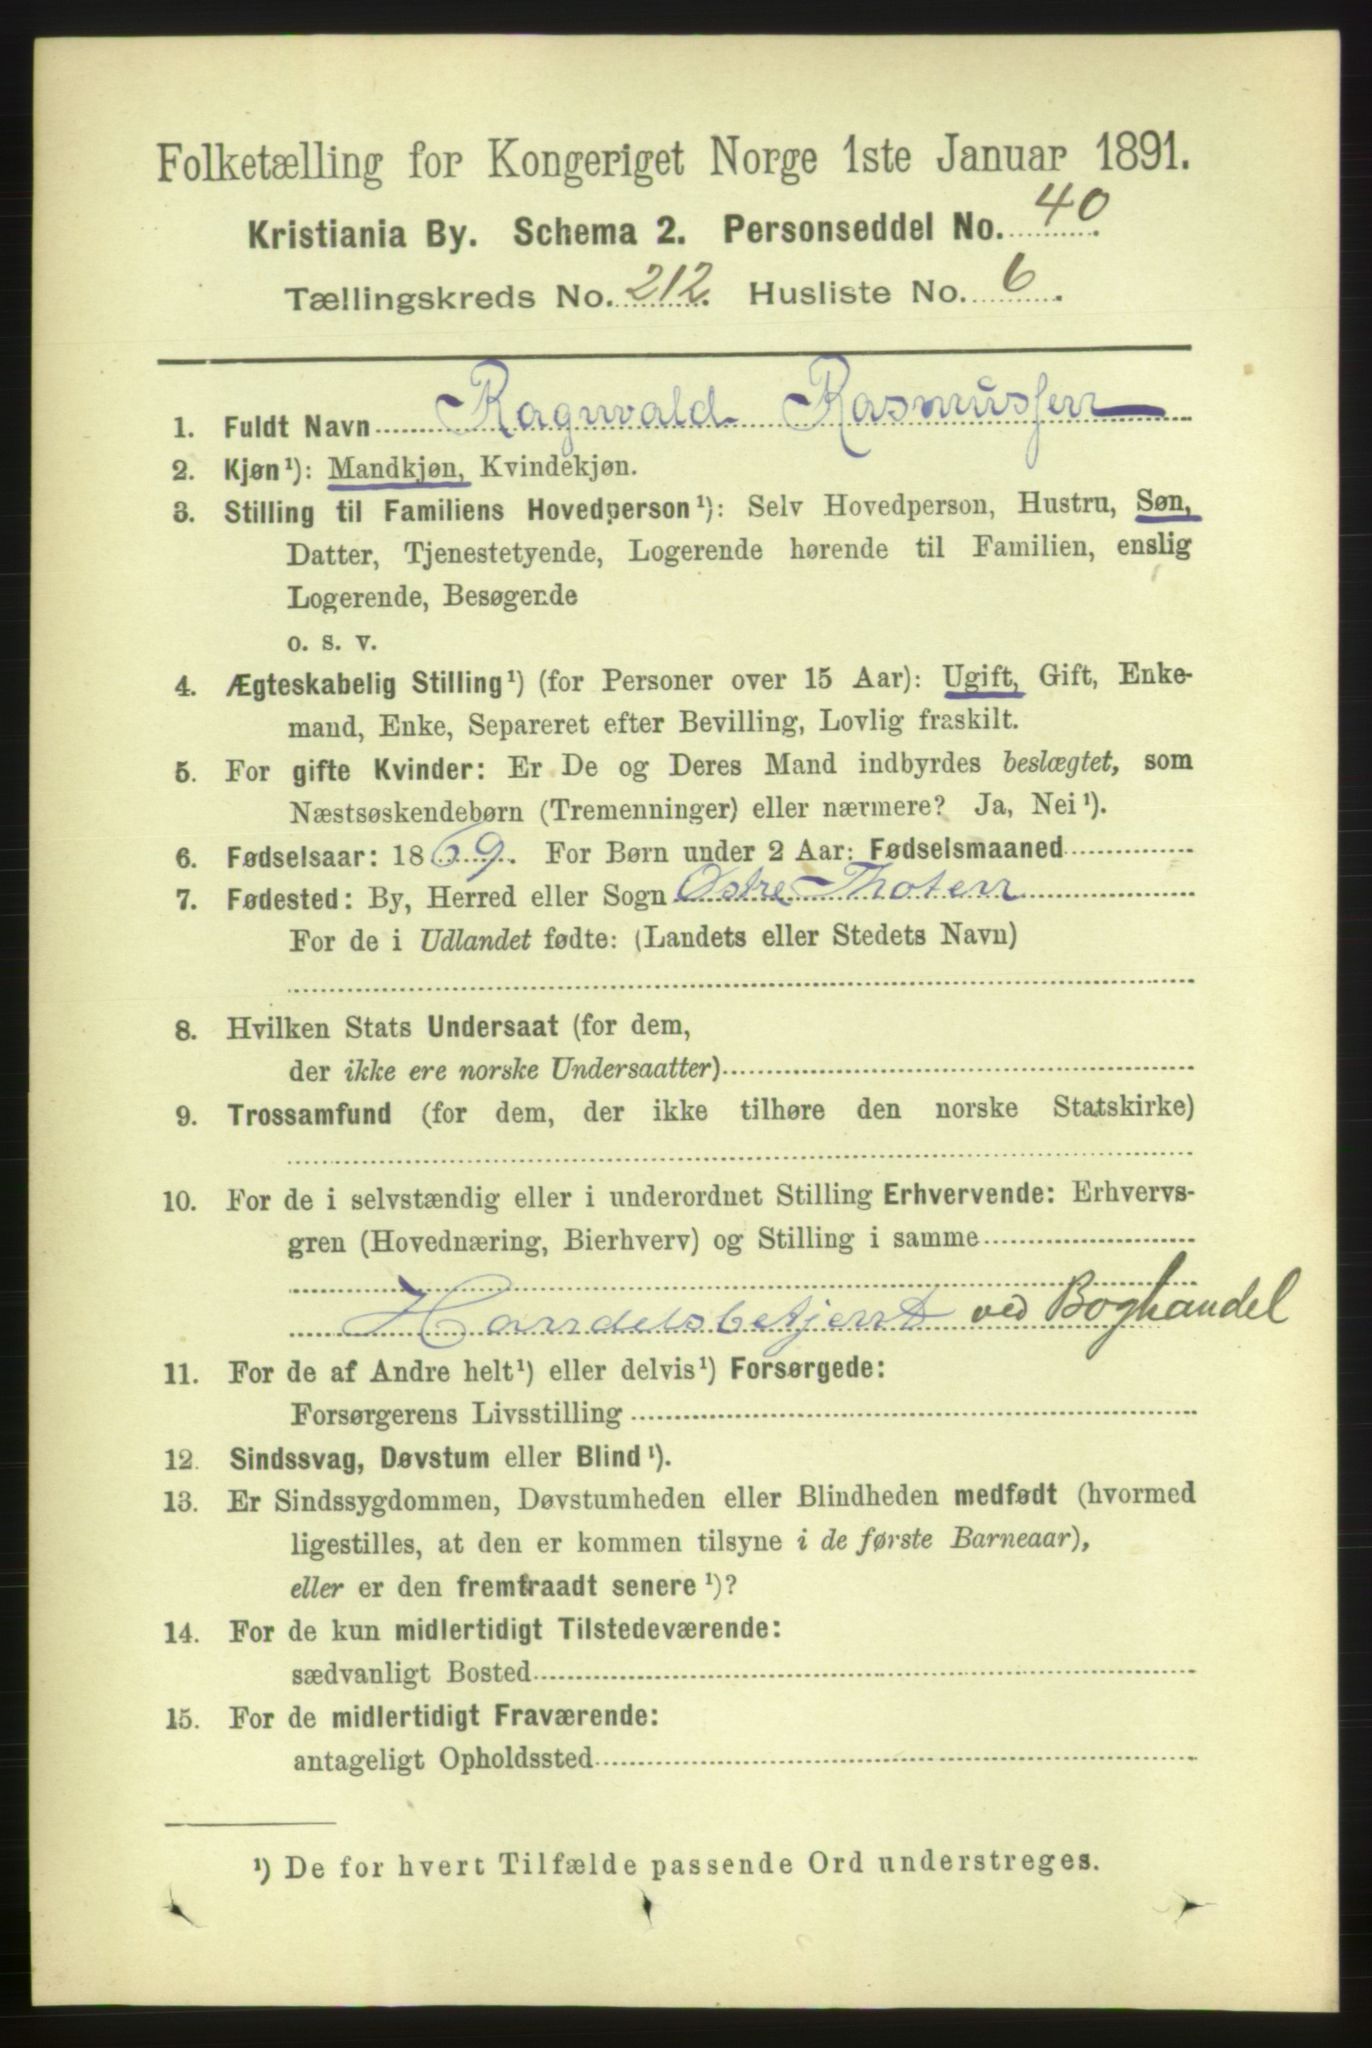 Folketælling for Kongeriget Norge 1ste Januar 1891.
Kristiania By. Schema 2. Personseddel No. 40
Tællingskreds No. 212. Husliste No. 6.
1. Fuldt Navn Ragnvald Rasmussen
2. Kjøn¹): Mandkjøn, Kvindekjøn.
3. Stilling til Familiens Hovedperson¹): Selv Hovedperson, Hustru, Søn,
Datter, Tjenestetyende, Logerende hørende til Familien, enslig
Logerende, Besøgende
o. s. v.
4. Ægteskabelig Stilling¹) (for Personer over 15 Aar): Ugift, Gift, Enke-
mand, Enke, Separeret efter Bevilling, Lovlig fraskilt.
5. For gifte Kvinder: Er De og Deres Mand indbyrdes beslægtet, som
Næstsøskendebørn (Tremenninger) eller nærmere? Ja, Nei¹).
6. Fødselsaar: 1869. For Børn under 2 Aar: Fødselsmaaned
7. Fødested: By, Herred eller Sogn Østre Thoten
For de i Udlandet fødte: (Landets eller Stedets Navn)
8. Hvilken Stats Undersaat (for dem,
der ikke ere norske Undersaatter)
9. Trossamfund (for dem, der ikke tilhøre den norske Statskirke)
10. For de i selvstændig eller i underordnet Stilling Erhvervende: Erhvervs-
gren (Hovednæring, Bierhverv) og Stilling i samme
Handelsbetjent ved Boghandel
11. For de af Andre helt¹) eller delvis¹) Forsørgede:
Forsørgerens Livsstilling
12. Sindssvag, Døvstum eller Blind¹).
13. Er Sindssygdommen, Døvstumheden eller Blindheden medfødt (hvormed
ligestilles, at den er kommen tilsyne i de første Barneaar),
eller er den fremtraadt senere¹)?
14. For de kun midlertidigt Tilstedeværende:
sædvanligt Bosted
15. For de midlertidigt Fraværende:
antageligt Opholdssted
¹) De for hvert Tilfælde passende Ord understreges.